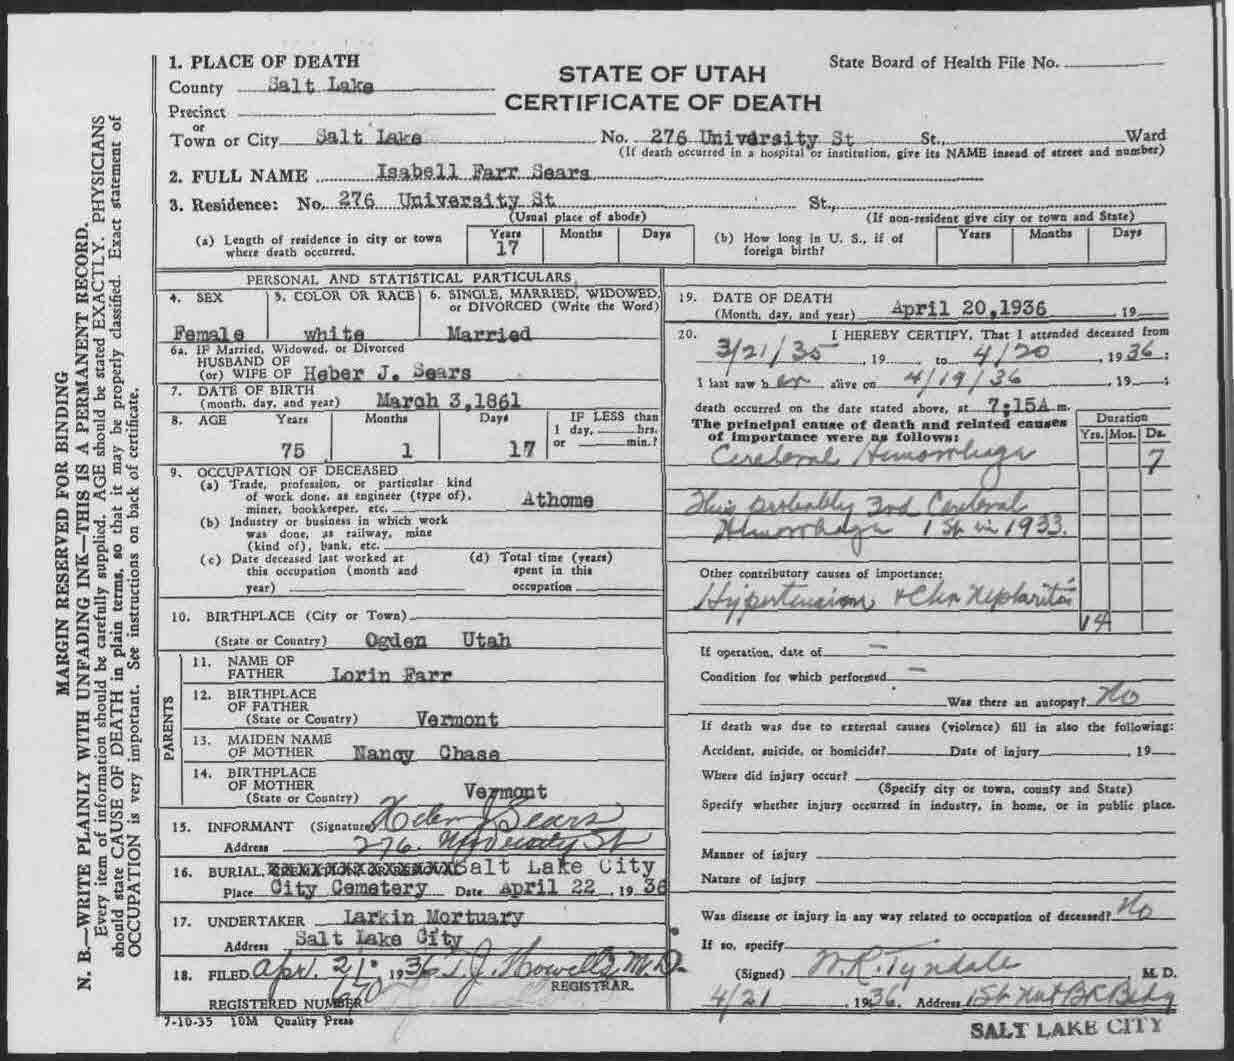 STATE OF UTAH
CERTIFICATE OF DEATH
State Board of Health File No.
1. PLACE OF DEATH
County Salt Lake
Precinct
or
Town or City Salt Lake No. 276 University St St., Ward
(If death occurred in a hospital or institution, give its NAME instead of street and number)
2. FULL NAME Isabell Farr Sears
3. Residence: No. 276 University St St.,
(Usual place of abode) (If non-resident give city or town and State)
(a) Length of residence in city or town where death occurred. Years 17 Months Days
(b) How long in U. S., if of foreign birth? Years Months Days
PERSONAL AND STATISTICAL PARTICULARS
4. SEX Female
5. COLOR OR RACE white
6. SINGLE, MARRIED, WIDOWED, or DIVORCED (Write the Word) Married
6a. IF Married, Widowed, or Divorced
HUSBAND OF
(or) WIFE OF Heber J. Sears
7. DATE OF BIRTH
(month, day, and year) March 3,1861
8. AGE Years 75 Months 1 Days 17
IF LESS than
1 day, hrs.
or min.?
9. OCCUPATION OF DECEASED
(a) Trade, profession, or particular kind
of work done, as engineer (type of),
miner, bookkeeper, etc. Athome
(b) Industry or business in which work
was done, as railway, mine
(kind of), bank, etc.
(c) Date deceased last worked at
this occupation (month and
year)
(d) Total time (years)
spent in this
occupation
10. BIRTHPLACE (City or Town)
(State or Country) Ogden Utah
PARENTS
11. NAME OF
FATHER Lorin Farr
12. BIRTHPLACE
OF FATHER
(State or Country) Vermont
13. MAIDEN NAME
OF MOTHER Nancy Chase
14. BIRTHPLACE
OF MOTHER
(State or Country) Vermont
15. INFORMANT (Signature) J Sears
Address 276. University St
16. BURIAL, Salt Lake City
Place City Cemetery Date April 22 , 19 36
17. UNDERTAKER Larkin Mortuary
Address Salt Lake City
18. FILED Apr. 21 1936 J. Howells M.D.
REGISTRAR.
REGISTERED NUMBER
7-10-35 10M Quality Press
19. DATE OF DEATH
(Month, day, and year) April 20,1936 , 19
20. I HEREBY CERTIFY, That I attended deceased from
3/21/35 , 19 to 4/20 , 1936 :
I last saw h er alive on 4/19/36 , 19 :
death occurred on the date stated above, at 7:15A m.
The principal cause of death and related causes
of importance were as follows:
Duration
Yrs. Mos. Ds.
Cerebral Hemorrhage 7
This probably 3rd Cerebral
Hemorrhage 1st in 1933.
Other contributory causes of importance:
Hypertension & Chr Nephritis
14
If operation, date of —
Condition for which performed —
Was there an autopsy? No
If death was due to external causes (violence) fill in also the following:
Accident, suicide, or homicide? Date of injury , 19
Where did injury occur?
(Specify city or town, county and State)
Specify whether injury occurred in industry, in home, or in public place.
Manner of injury
Nature of injury
Was disease or injury in any way related to occupation of deceased? No
If so, specify
(Signed) W.R. Tyndale M. D.
4/21 , 1936. Address 1St Nat BK Bldg
SALT LAKE CITY
MARGIN RESERVED FOR BINDING
N. B.—WRITE PLAINLY WITH UNFADING INK—THIS IS A PERMANENT RECORD.
Every item of information should be carefully supplied. AGE should be stated EXACTLY. PHYSICIANS
should state CAUSE OF DEATH in plain terms, so that it may be properly classified. Exact statement of
OCCUPATION is very important. See instructions on back of certificate.